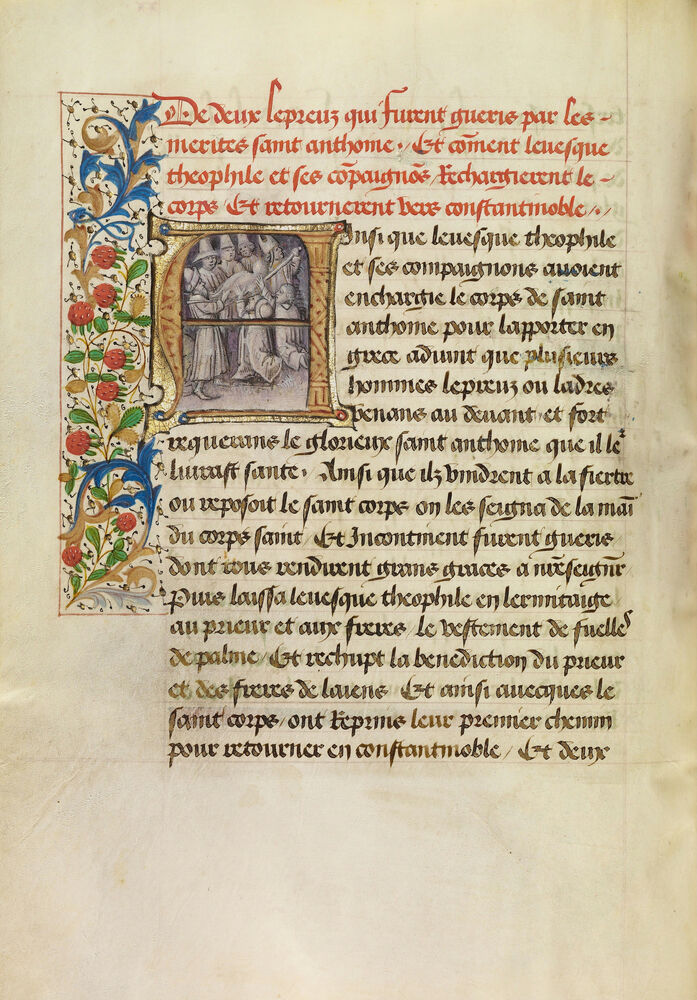 De deux lepreux qui furent gueris par les-
merites saint anthoine. Et cõment leuesque
theophile et ses cõpaignõs / Rechargierent le-
corps Et retournerent vers constantinoble /.
Ainsi que leuesque theophile
et ses compaignons auoient
enchargie le corps de saint
anthoine pour lapporter en
grece aduint que plusieurs
hommes lepreux ou ladres
venans au deuant et fort
requerans le glorieux saint anthoine que il le²
liurast sante. Ainsi que ilz vindrent a la fiertre
ou reposoit le saint corps on les seigna de la maĩ
du corps saint Et Incontinent furent gueris
dont tous rendirent grans graces a nr̃eseignr̃
Puis laissa leuesque theophile en lermitaige
au prieur et aux freres / le vestement de fuelles
de palme / Et rechupt la benediction du prieur
et des freres de laiens Et ainsi auecques le
saint corps / ont Reprins leur premier chemin
pour retourner en constantinoble / Et deux